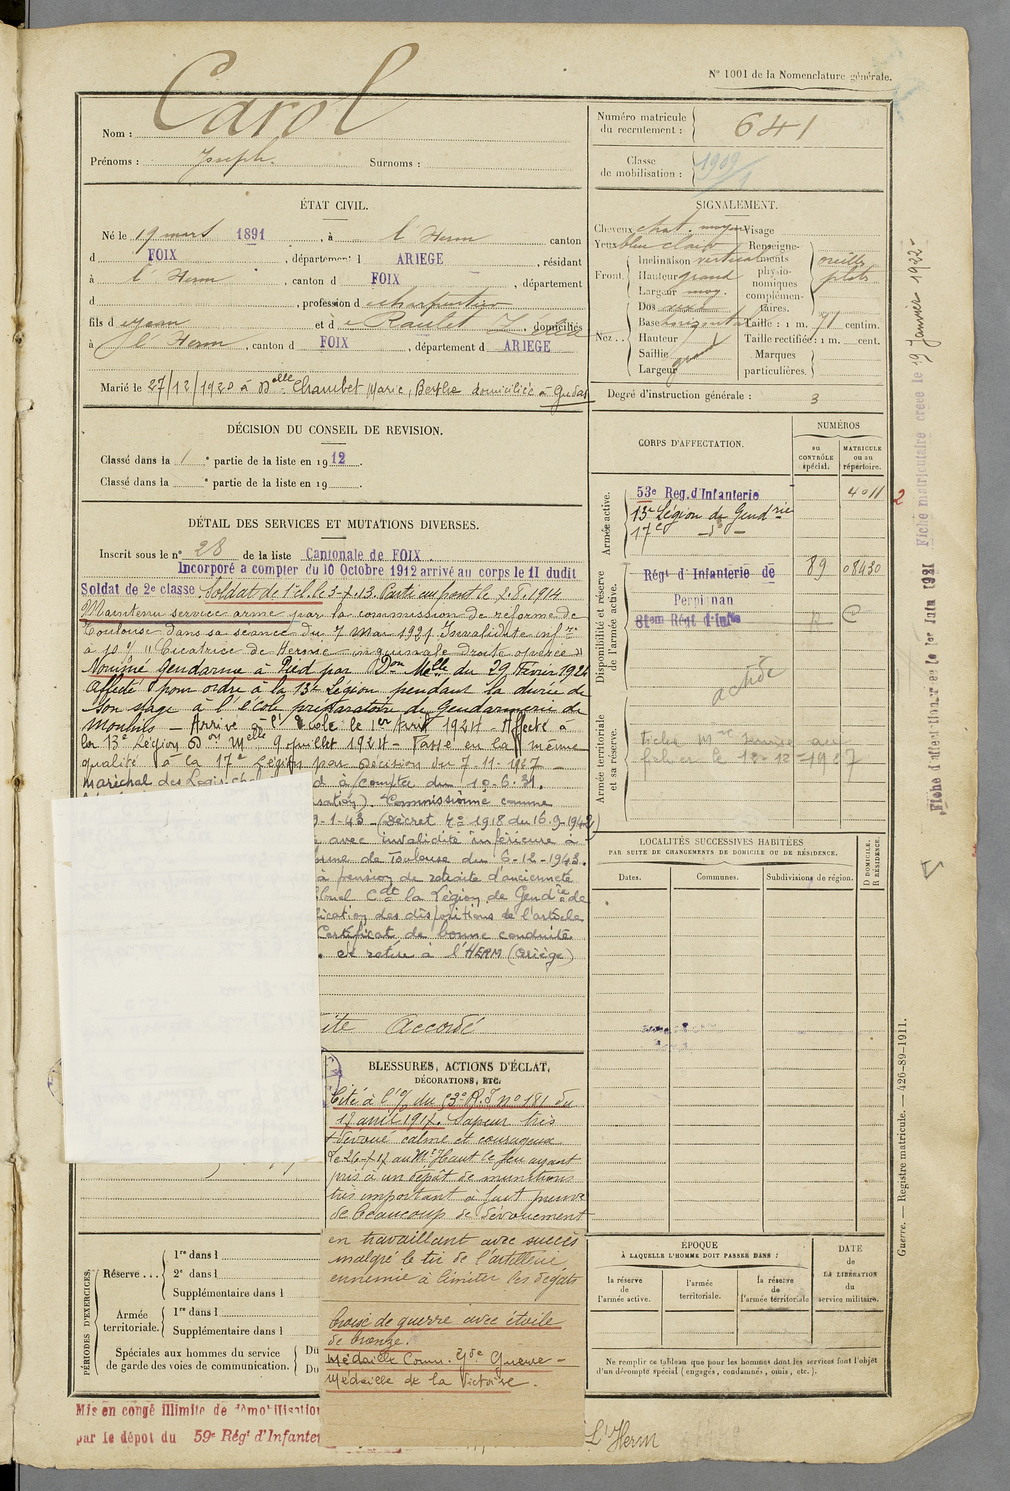 N° 1001 de la Nomenclature générale.
Nom : Carol
Prénoms : Joseph. Surnoms :
Numéro matricule du recrutement : 641
Classe de mobilisation : 1909/1
ÉTAT CIVIL.
Né le 19 mars 1891, à l'Herm canton
d FOIX, département d ARIEGE, résidant
à l'Herm, canton d FOIX, département
d , profession d charpentier
fils d et d Raulet , domiciliés
à l'Herm, canton d FOIX, département d ARIEGE
Marié le 27/12/1920 à Delle Chambet Marie, Berthe domiciliée à Gudas
SIGNALEMENT.
Cheveux chat. moyen Visage
Yeux bleu clair Renseignements physionomiques complémentaires. oreilles plates
Front. Inclinaison verticale
Hauteur grand
Largeur moy.
Nez.. Dos
Base horizontale Taille : 1 m. 71 centim.
Hauteur Taille rectifiée : 1 m. cent.
Saillie Marques
Largeur grand particulières.
Degré d'instruction générale : 3
DÉCISION DU CONSEIL DE REVISION.
Classé dans la 1e partie de la liste en 1912.
Classé dans la e partie de la liste en 19
DÉTAIL DES SERVICES ET MUTATIONS DIVERSES.
Inscrit sous le n° 28 de la liste Cantonale de FOIX
Incorporé à compter du 10 Octobre 1912 arrivé au corps le 11 dudit
Soldat de 2e classe. Soldat de 1e cl. le Parti au front le 7.8.1914
Maintenu service armé par la commission de réforme de
Toulouse dans sa séance du 7 mai 1921. Invalidité infre
à 10 % "Cicatrice de Hernie inguinale droite opérée"
Nommé gendarme à Pied par Don Melle du 29 Février 1924
Affecté pour ordre à la 13e Légion pendant la durée de
son stage à l'école préparatoire de gendarmerie de
Moulins - Arrivé à l'Ecole le 1er Avril 1924 - Affecté à
la 13e Légion Don Melle 9 juillet 1924 - Passé en la même
qualité à la 17e Légion par Décision du 7-11-1927 -
Maréchal des Logis chef à compter du 10-6-31.
Commissionné comme
9-1-43 - (Décret n° 1918 du 16-9-1942)
avec invalidité inférieure à
de Toulouse du 6-12-1943.
à pension de retraite d'ancienneté
Cdt la Légion de Gendie de
dispositions de l'article
Certificat de bonne conduite
se retire à l'HERM (Ariège)
Accordé
CORPS D'AFFECTATION.
NUMÉROS
au CONTRÔLE spécial.
MATRICULE ou au répertoire.
Armée active.
53e Reg. d'Infanterie 4011 2
13e Légion de Gendrie
17e - do -
Disponibilité et réserve de l'armée active.
Régt d'Infanterie de 89 08430
Perpignan
81em Régt d'Infie C
Armée territoriale et sa réserve.
le 12-12-1927
LOCALITÉS SUCCESSIVES HABITÉES
PAR SUITE DE CHANGEMENTS DE DOMICILE OU DE RÉSIDENCE.
D DOMICILE.
R RÉSIDENCE.
Dates. Communes. Subdivisions de région.
BLESSURES, ACTIONS D'ÉCLAT,
DÉCORATIONS, ETC.
Cité à l'O/ du 53e R.I n° 181 du
17 avril 1917. Sapeur très
dévoué calme et courageux
au Mt Haut le feu ayant
pris à un dépôt de munitions
très important a fait preuve
de beaucoup de dévouement
en travaillant avec succès
malgré le tir de l'artillerie
ennemie à limiter les dégâts
Croix de guerre avec étoile
de bronze.
Médaille Comm. Gde Guerre -
Médaille de la Victoire.
PÉRIODES D'EXERCICES.
Réserve... 1re dans l
2e dans l
Supplémentaire dans l
Armée territoriale. 1re dans l
Supplémentaire dans l
Spéciales aux hommes du service
de garde des voies de communication.
Du
Du
ÉPOQUE
À LAQUELLE L'HOMME DOIT PASSER DANS :
la réserve de l'armée active.
l'armée territoriale.
la réserve de l'armée territoriale
DATE
de
LA LIBÉRATION
du
service militaire.
Ne remplir ce tableau que pour les hommes dont les services font l'objet
d'un décompte spécial (engagés, condamnés, omis, etc.).
Mis en congé illimité de démobilisation
par le dépôt du 59e Régt d'Infanterie
L'Herm
Fiche d'affectation créée le 1er Juin 1921 Fiche matriculaire créée le 19 Janvier 1922-
Guerre. — Registre matricule. — 426-89-1911.